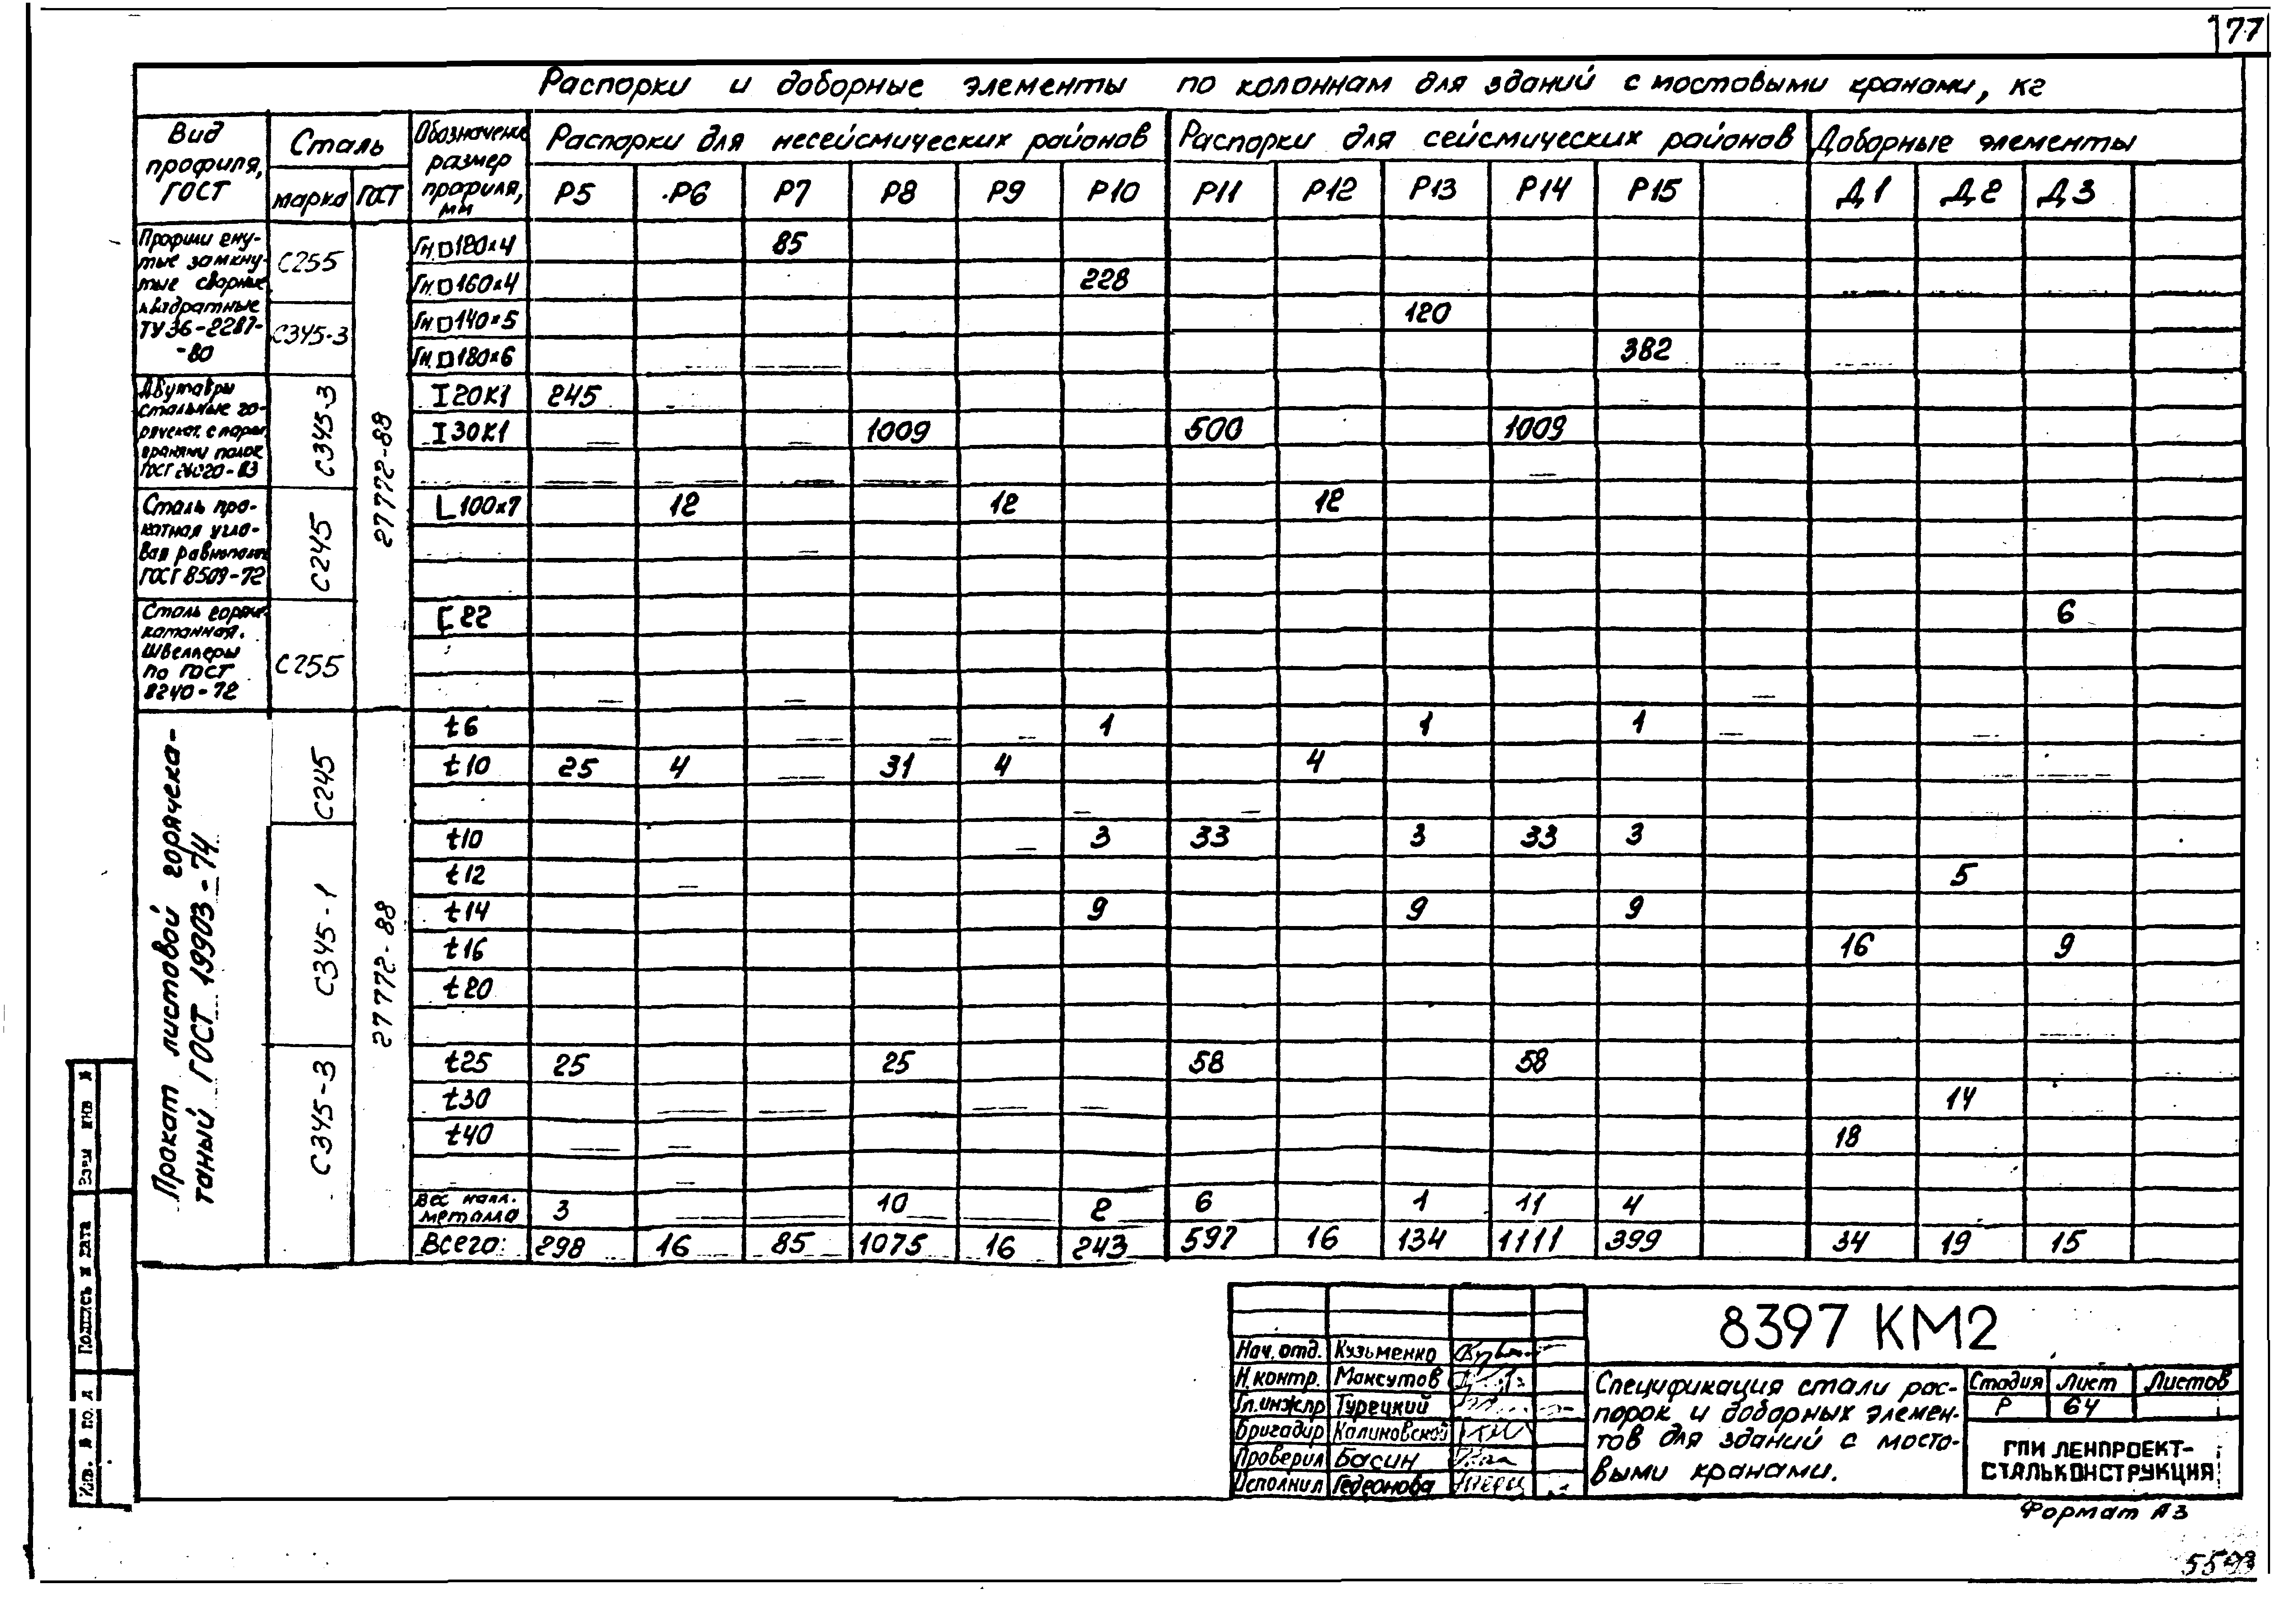 77
Распорки и доборные элементы по колоннам для зданий с мостовыми кранами, кг
Вид профиля, ГОСТ
Сталь
марка ГОСТ
Обозначение размер профиля, мм
Распорки для несейсмических районов
Распорки для сейсмических районов
Доборные элементы
Р5 Р6 Р7 Р8 Р9 Р10 Р11 Р12 Р13 Р14 Р15 Д1 Д2 Д3
Профили гну-
тые замкну-
тые сварные
квадратные
ТУ 36-2287-
-80
С255
С345-3
Гн.□120×4 85
Гн.□160×4 228
Гн.□140×5 120
Гн.□180×6 382
Двутавры
стальные го-
рячекат. с парал
гранями полок
ГОСТ 26020-83
С345-3
27772-88
I20К1 245
I30К1 1009 500 1009
Сталь про-
катная угло-
вая равнополоч
ГОСТ 8509-72
С245
L100×7 12 12 12
Сталь горяче-
катанная.
Швеллеры
по ГОСТ
8240-72
С255
[22 6
Прокат листовой горячека-
таный ГОСТ 19903-74
С245
С345-1
С345-3
27772-88
t6 1 1 1
t10 25 4 31 4 4
t10 3 33 3 33 3
t12 5
t14 9 9 9
t16 16 9
t20
t25 25 25 58 58
t30 14
t40 18
Вес напл. металла 3 10 2 6 1 11 4
Всего: 298 16 85 1075 16 243 597 16 134 1111 399 34 19 15
Взам инв №
Подпись и дата
Инв. № по. д
8397 КМ2
Нач. отд. Кузьменко
Н. контр. Максутов
Гл.инж.пр Турецкий
Бригадир Калиновской
Проверил Басин
Исполнил Гедеонова
Спецификация стали рас-
порок и доборных элемен-
тов для зданий с мосто-
выми кранами.
Стадия Лист Листов
Р 64
ГПИ ЛЕНПРОЕКТ-
СТАЛЬКОНСТРУКЦИЯ
Формат А3